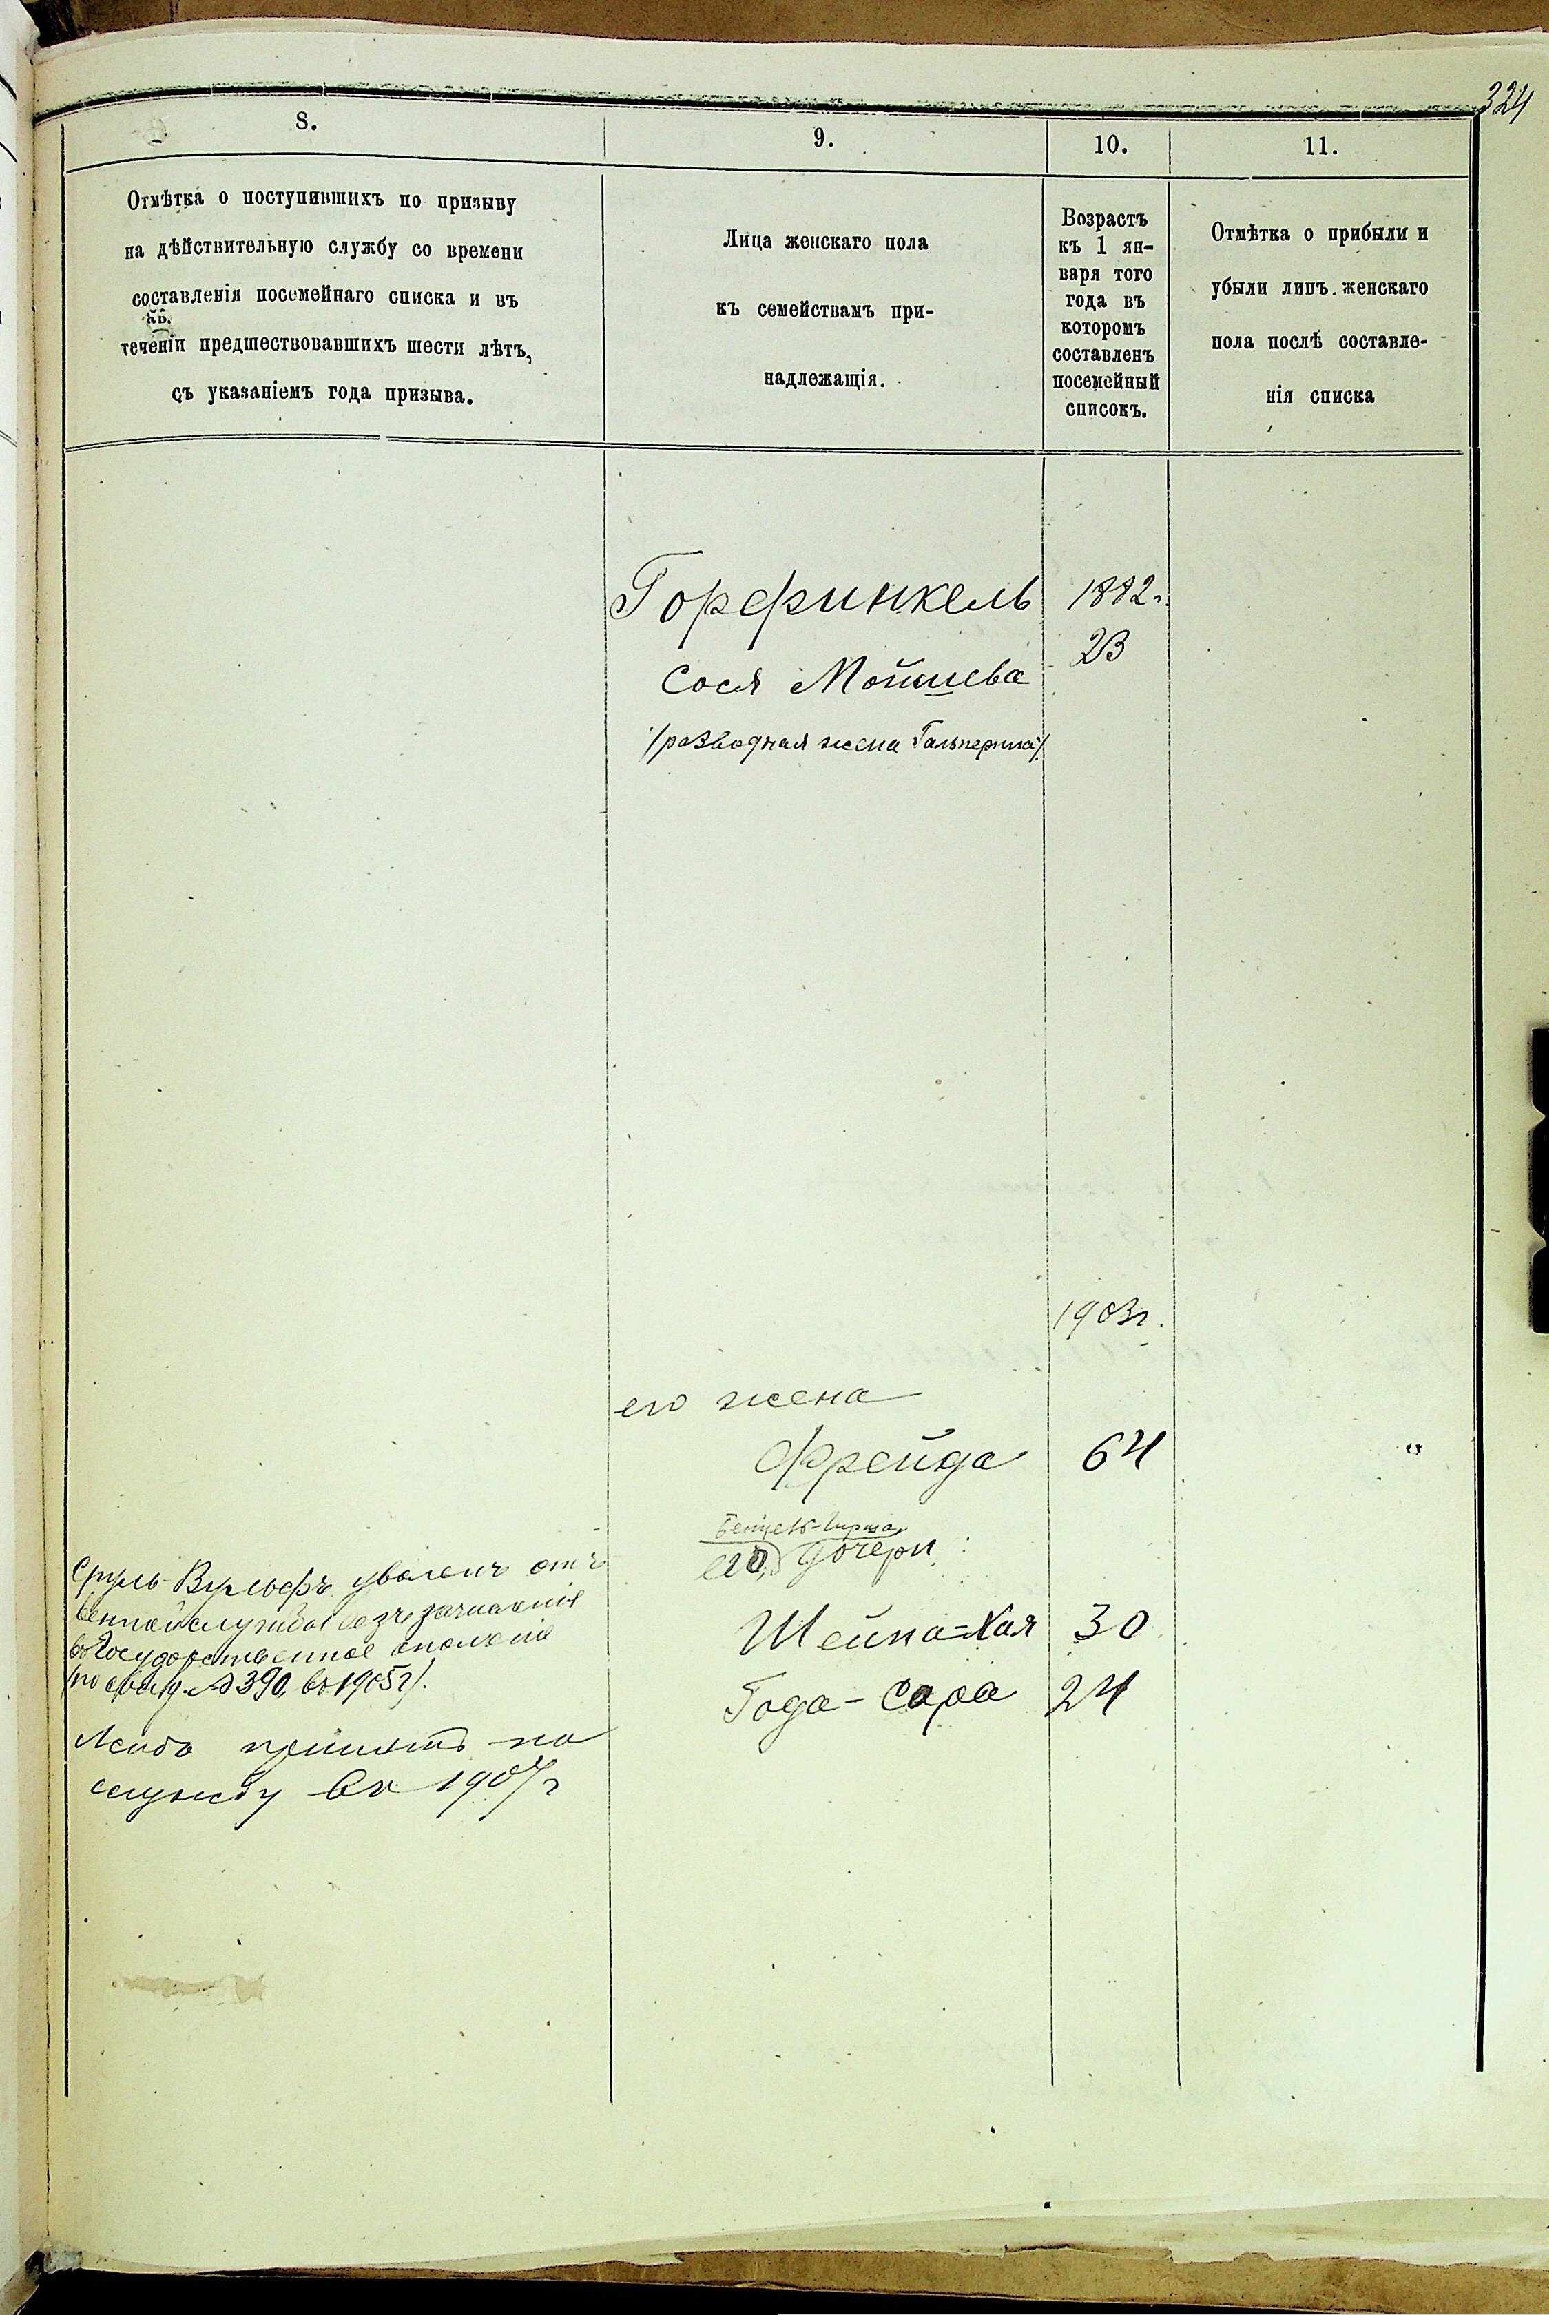 324
8.
9.
10.
11.
Отмѣтка о поступившихъ по призыву
на дѣйствительную службу со времени
составленія посемейнаго списка и въ
теченіи предшествовавшихъ шести лѣтъ,
съ указаніемъ года призыва.
Лица женскаго пола
къ семействамъ при-
надлежащія.
Возрастъ
къ 1 ян-
варя того
года въ
которомъ
составленъ
посемейный
списокъ.
Отмѣтка о прибыли и
убыли лицъ женскаго
пола послѣ составле-
нія списка
Горфинкель 1882г.
Сося Мойшева 23
/разводная жена Гальперина/
1903г.
его жена
Фрейда 64 "
его дочери
Шейна-Хая 30
Года-Сора 24
Сруль-Вульфъ уволенъ отъ
военной службы безъ зачисленія
въ Государственное ополченіе
№ 390, въ 1905г).
Лейба принятъ на
службу въ 1907г